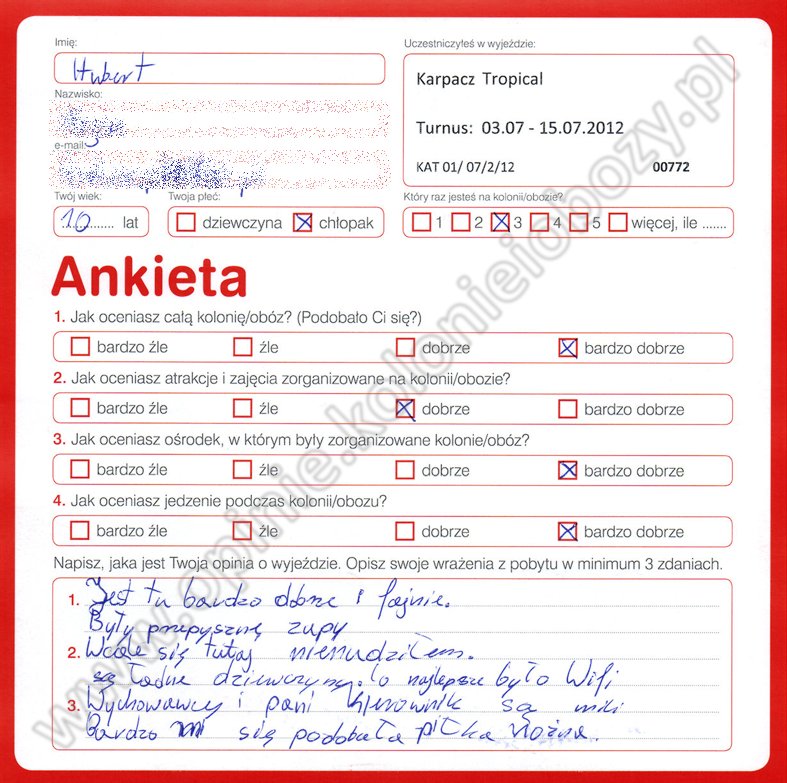 Imię:
Hubert
Nazwisko:
e-mail
Twój wiek:
10 lat
Twoja płeć:
dziewczyna chłopak
Uczestniczyłeś w wyjeździe:
Karpacz Tropical
Turnus: 03.07 - 15.07.2012
KAT 01/ 07/2/12 00772
Który raz jesteś na kolonii/obozie?
1 2 3 4 5 więcej, ile .......
Ankieta
1. Jak oceniasz całą kolonię/obóz? (Podobało Ci się?)
bardzo źle źle dobrze bardzo dobrze
2. Jak oceniasz atrakcje i zajęcia zorganizowane na kolonii/obozie?
bardzo źle źle dobrze bardzo dobrze
3. Jak oceniasz ośrodek, w którym były zorganizowane kolonie/obóz?
bardzo źle źle dobrze bardzo dobrze
4. Jak oceniasz jedzenie podczas kolonii/obozu?
bardzo źle źle dobrze bardzo dobrze
Napisz, jaka jest Twoja opinia o wyjeździe. Opisz swoje wrażenia z pobytu w minimum 3 zdaniach.
1. Jest tu bardzo dobrze i fajnie.
Były przepyszne zupy
2. Wcale się tutaj nienudziłem.
są ładne dziewczyny. to najlepsze było Wifi
3. Wychowawcy i pani kierownik są mili
Bardzo mi się podobała piłka nożna.
www.opinie.kolonieiobozy.pl